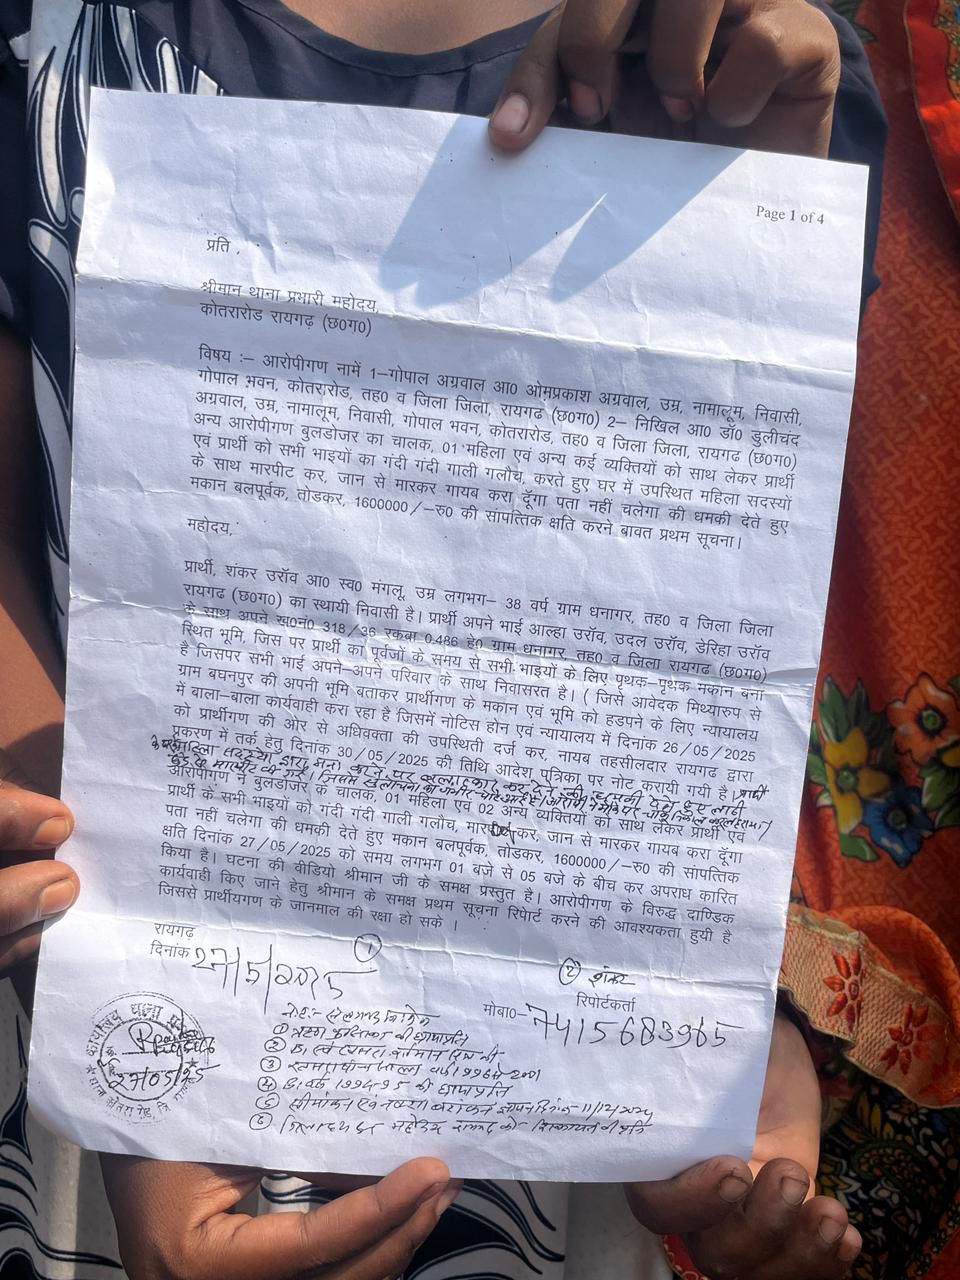 Page 1 of 4
प्रति ,
श्रीमान थाना प्रभारी महोदय,
कोतरारोड रायगढ़ (छ0ग0)
विषय :– आरोपीगण नामें 1–गोपाल अग्रवाल आ0 ओमप्रकाश अग्रवाल, उम्र, नामालूम, निवासी,
गोपाल भवन, कोतरारोड, तह0 व जिला जिला, रायगढ (छ0ग0) 2– निखिल आ0 डॉ0 डुलीचंद
अग्रवाल, उम्र, नामालूम, निवासी, गोपाल भवन, कोतरारोड, तह0 व जिला जिला, रायगढ (छ0ग0)
अन्य आरोपीगण बुलडोजर का चालक, 01 महिला एवं अन्य कई व्यक्तियों को साथ लेकर प्रार्थी
एवं प्रार्थी को सभी भाइयों का गंदी गंदी गाली गलौच, करते हुए घर में उपस्थित महिला सदस्यों
के साथ मारपीट कर, जान से मारकर गायब करा दूँगा पता नहीं चलेगा की धमकी देते हुए
मकान बलपूर्वक, तोडकर, 1600000/–रु0 की सांपत्तिक क्षति करने बावत प्रथम सूचना।
महोदय,
प्रार्थी, शंकर उराँव आ0 स्व0 मंगलू, उम्र लगभग– 38 वर्ष ग्राम धनागर, तह0 व जिला जिला
रायगढ (छ0ग0) का स्थायी निवासी है। प्रार्थी अपने भाई आल्हा उराँव, उदल उराँव, डेरिहा उराँव
के साथ अपने ख0नं0 318/36 रकबा 0.486 हे0 ग्राम धनागर, तह0 व जिला रायगढ (छ0ग0)
स्थित भूमि, जिस पर प्रार्थी का पूर्वजों के समय से सभी भाइयों के लिए पृथक–पृथक मकान बना
है जिसपर सभी भाई अपने–अपने परिवार के साथ निवासरत है। ( जिसे आवेदक मिथ्यारुप से
ग्राम बघनपुर की अपनी भूमि बताकर प्रार्थीगण के मकान एवं भूमि को हडपने के लिए न्यायालय
में बाला–बाला कार्यवाही करा रहा है जिसमें नोटिस होन एवं न्यायालय में दिनांक 26/05/2025
को प्रार्थीगण की ओर से अधिवक्ता की उपस्थिती दर्ज कर, नायब तहसीलदार रायगढ द्वारा
प्रकरण में तर्क हेतु दिनांक 30/05/2025 की तिथि आदेश पूत्रिका पर नोट करायी गयी है। प्रार्थी
महिला सदस्यो द्वारा मना करने पर बलात्कार कर देने की धमकी देते हुए लाठी
आरोपीगण ने बुलडोजर के चालक, 01 महिला एवं 02 अन्य व्यक्तियों को साथ लेकर प्रार्थी एवं
प्रार्थी के सभी भाइयों को गंदी गंदी गाली गलौच, कर, जान से मारकर गायब करा दूँगा
पता नहीं चलेगा की धमकी देते हुए मकान बलपूर्वक, तोडकर, 1600000/–रु0 की सांपत्तिक
क्षति दिनांक 27/05/2025 को समय लगभग 01 बजे से 05 बजे के बीच कर अपराध कारित
किया है। घटना की वीडियो श्रीमान जी के समक्ष प्रस्तुत है। आरोपीगण के विरुद्ध दाण्डिक
कार्यवाही किए जाने हेतु श्रीमान के समक्ष प्रथम सूचना रिपोर्ट करने की आवश्यकता हुयी है
जिससे प्रार्थीयगण के जानमाल की रक्षा हो सके ।
रायगढ़
दिनांक 27/5/2025
①
② शंकर
रिपोर्टकर्ता
मोबा0– 7415683965
27/05/25
①
②
③ वर्ष 1996 से 2001
④ B1 वर्ष 1994-95 की छायाप्रति
⑤ सीमांकन एवं 11/12/2024
⑥ महोदय रायगढ़ को शिकायत की प्रति